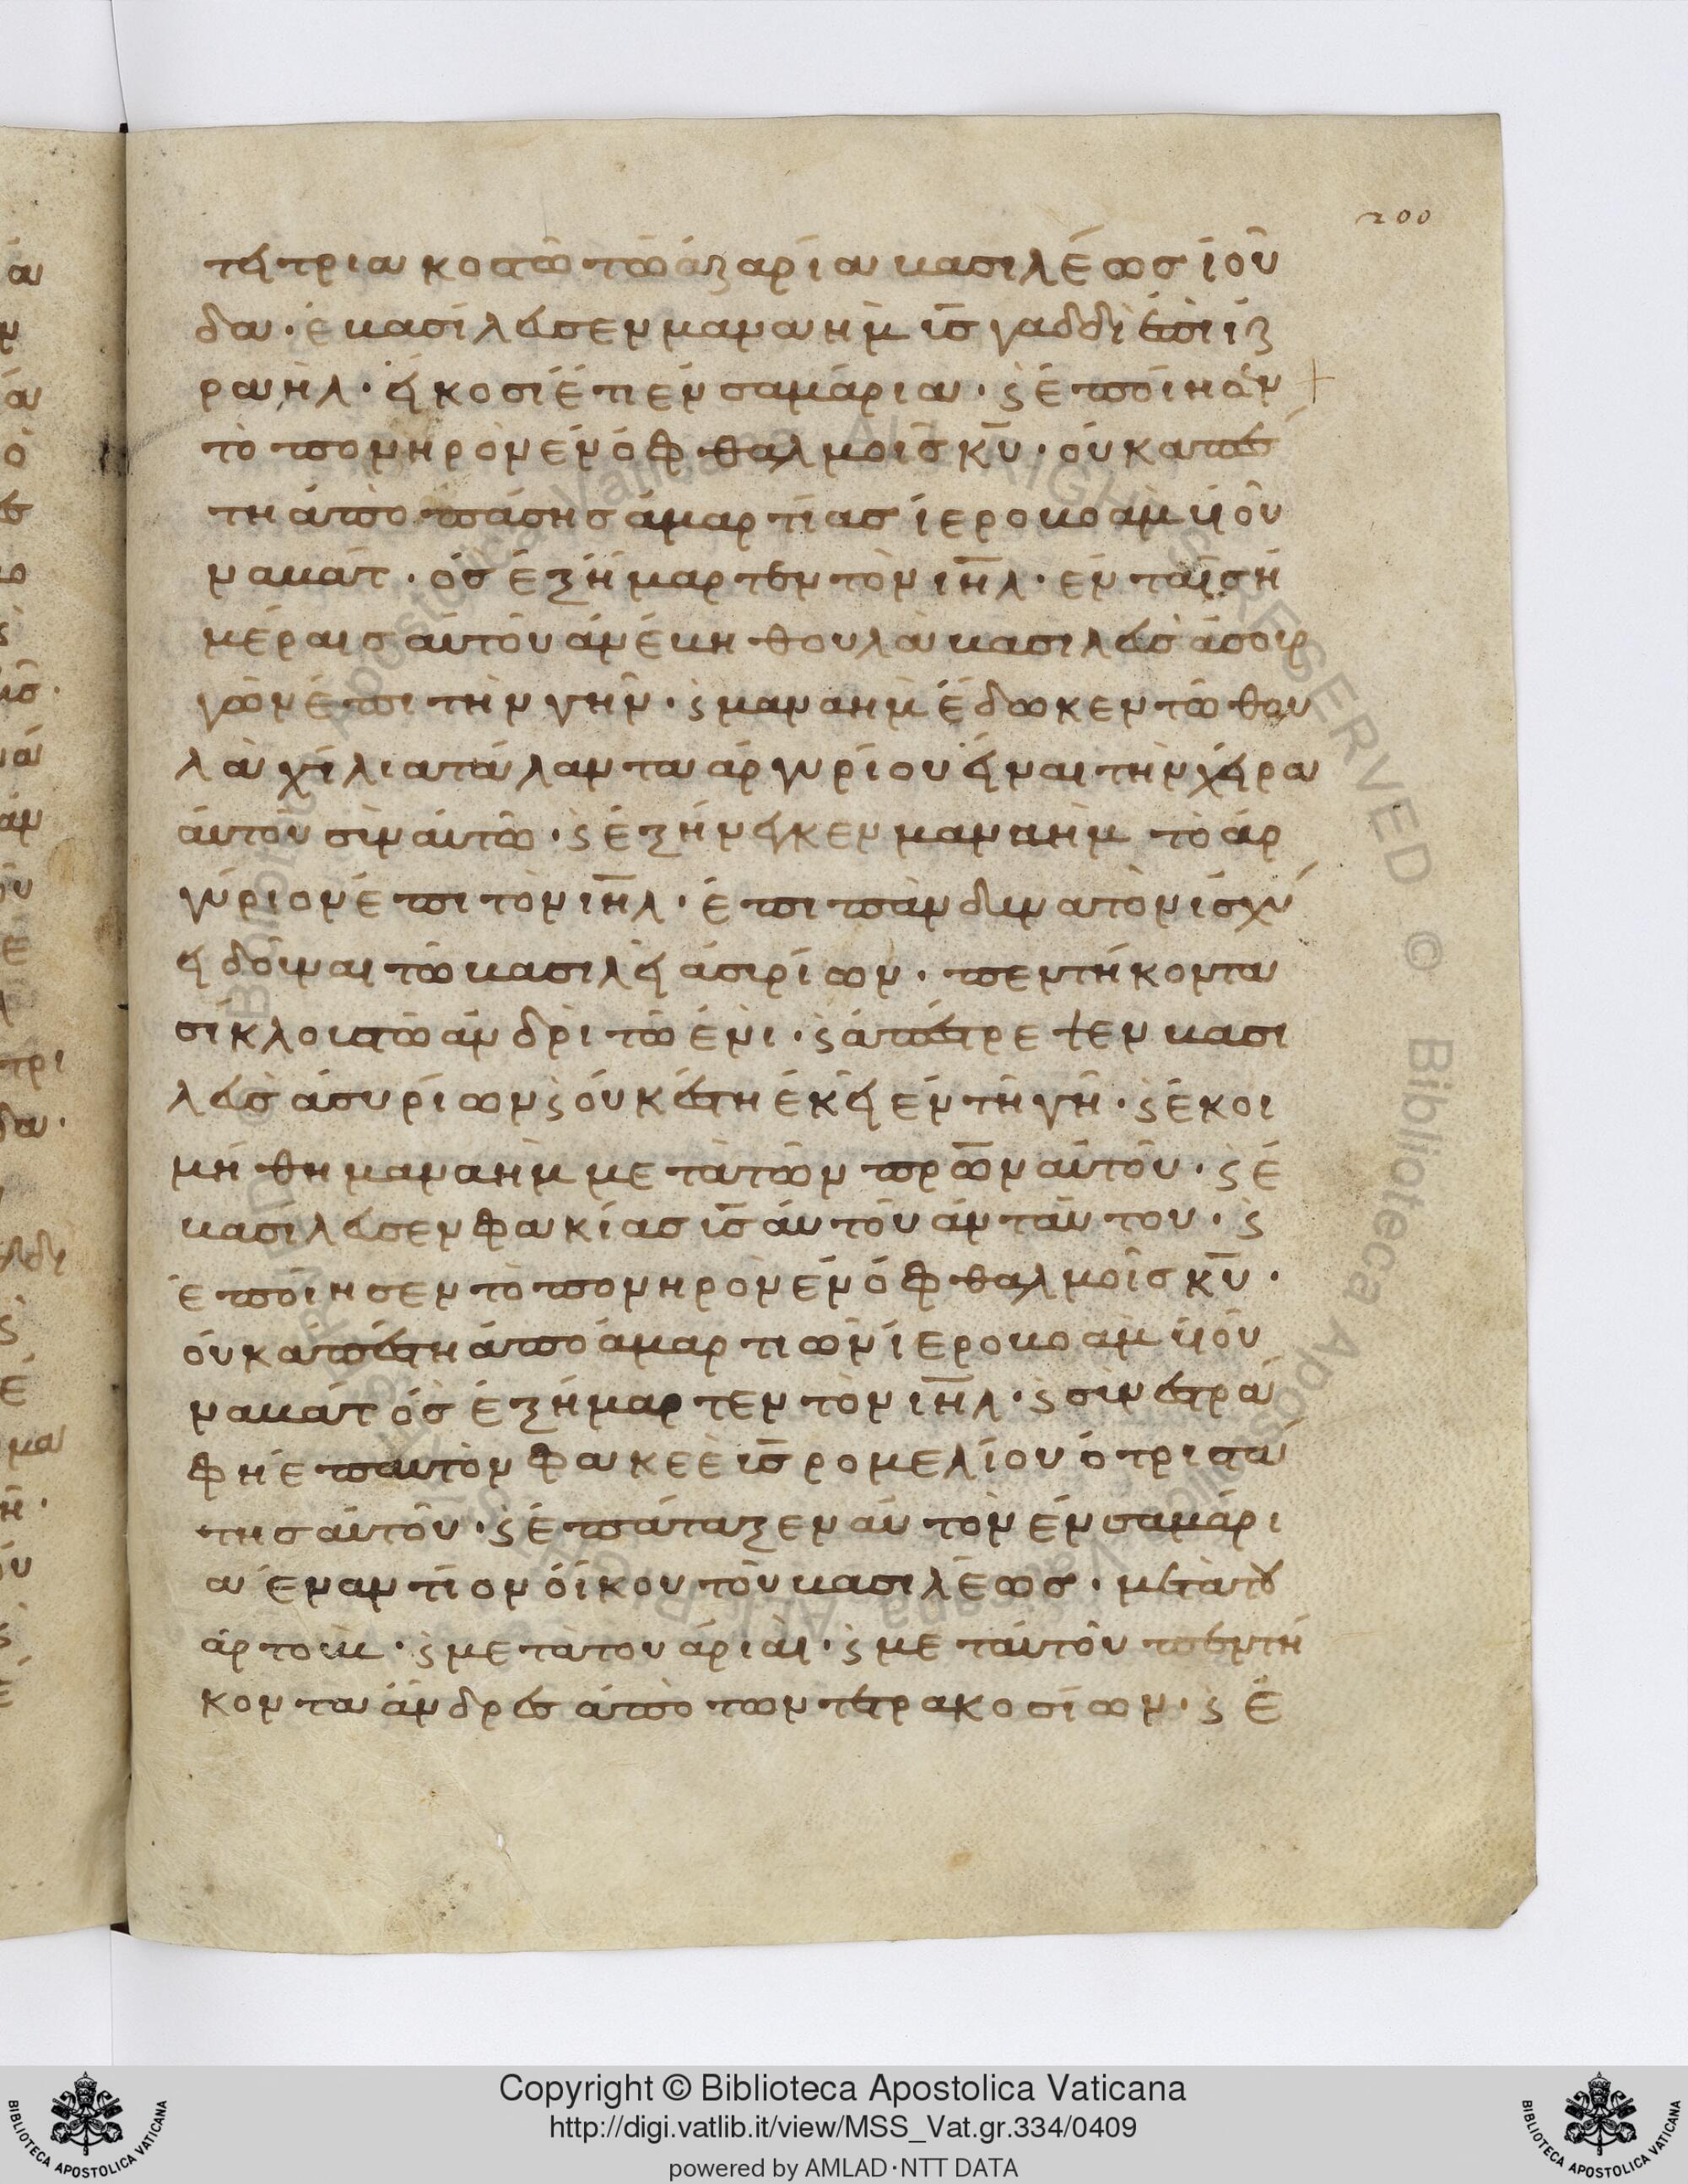 200
τει τριακοστῶ τῶ ἀζαρία βασιλέωσ ἰοῦ
δα · ἐβασίλευσεν μαναὴμ ὑ̅σ̅ γαδδὶ ἐπὶ ἰζ
ραὴλ · εἰκοσι ἔτι ἐν σαμάρια · ϛ ἐποίησεν
τὸ πονηρὸν ἐν ὀφθαλμοῖσ κ̅υ̅ · οὐκ απέσ
τη ἀπὸ πάσησ ἁμαρτίασ ἱεροβοὰμ υἱοῦ
ναβάτ · ὃσ ἐξήμαρτεν τὸν ι̅η̅λ̅ · ἐν ταῖσ ἡ
μέραισ αὐτοῦ ἀνέβη θουλὰ βασιλεὺσ ἀσσυρ
γῶν ἐπι τὴν γῆν · ϛ μαναὴμ ἔδωκεν τῶ θου
λὰ χίλια τάλαντα ἀργυρίου εἶναι τὴν χεῖρα
αὐτοῦ σὺν αὐτῶ · ϛ ἐξήνεικεν μαναὴμ τὸ ἀρ
γύριον ἐπι τὸν ι̅η̅λ̅ · ἐπι πὰν δυνατὸν ἰσχύ
ει δοῦναι τῶ βασιλεῖ ἀσιρίων · πεντήκοντα
σίκλουσ τῶ ἀνδρὶ τῶ ἑνὶ · ϛ ἀπέστρεψεν βασι
λεὺσ ἀσυρίων ϛ οὐκ ἔστη ἐκεῖ ἐν τῆ γῆ · ϛ ἐκοι
μήθη μαναὴμ μετὰ τῶν π̅ρ̅ω̅ν αὐτοῦ · ϛ ἐ
βασιλευσεν φακίασ ὑ̅σ̅ αὐτοῦ ἀντ αὐτου · ϛ
ἐποίησεν τὸ πονηρὸν ἐν ὀφθαλμοῖσ κ̅υ̅ ·
οὐκ απέστη ἀπὸ ἁμαρτιῶν ἱεροβοὰμ υἱοῦ
ναβάτ ὃσ ἐξήμαρτεν τὸν ι̅η̅λ̅ · ϛ συνεστρά
φη ἐπ αυτὸν φακεὲ ὑ̅σ̅ ρομελίου ὁ τριστά
τησ αὐτοῦ · ϛ ἐπάταξεν αὐτὸν ἐν σαμάρι
α ἐναντίον οἴκου τοῦ βασιλέωσ · μετὰ τοῦ
ἀρτοὺβ · ϛ μετὰ του ἀριὰι · ϛ μετ αὐτοῦ πεντή
κοντα ἄνδρεσ ἀπὸ των τετρακοσίων · ϛ ἐ
Copyright © Biblioteca Apostolica Vaticana
http://digi.vatlib.it/view/MSS_Vat.gr.334/0409
powered by AMLAD·NTT DATA
BIBLIOTECA APOSTOLICA VATICANA
BIBLIOTECA APOSTOLICA VATICANA